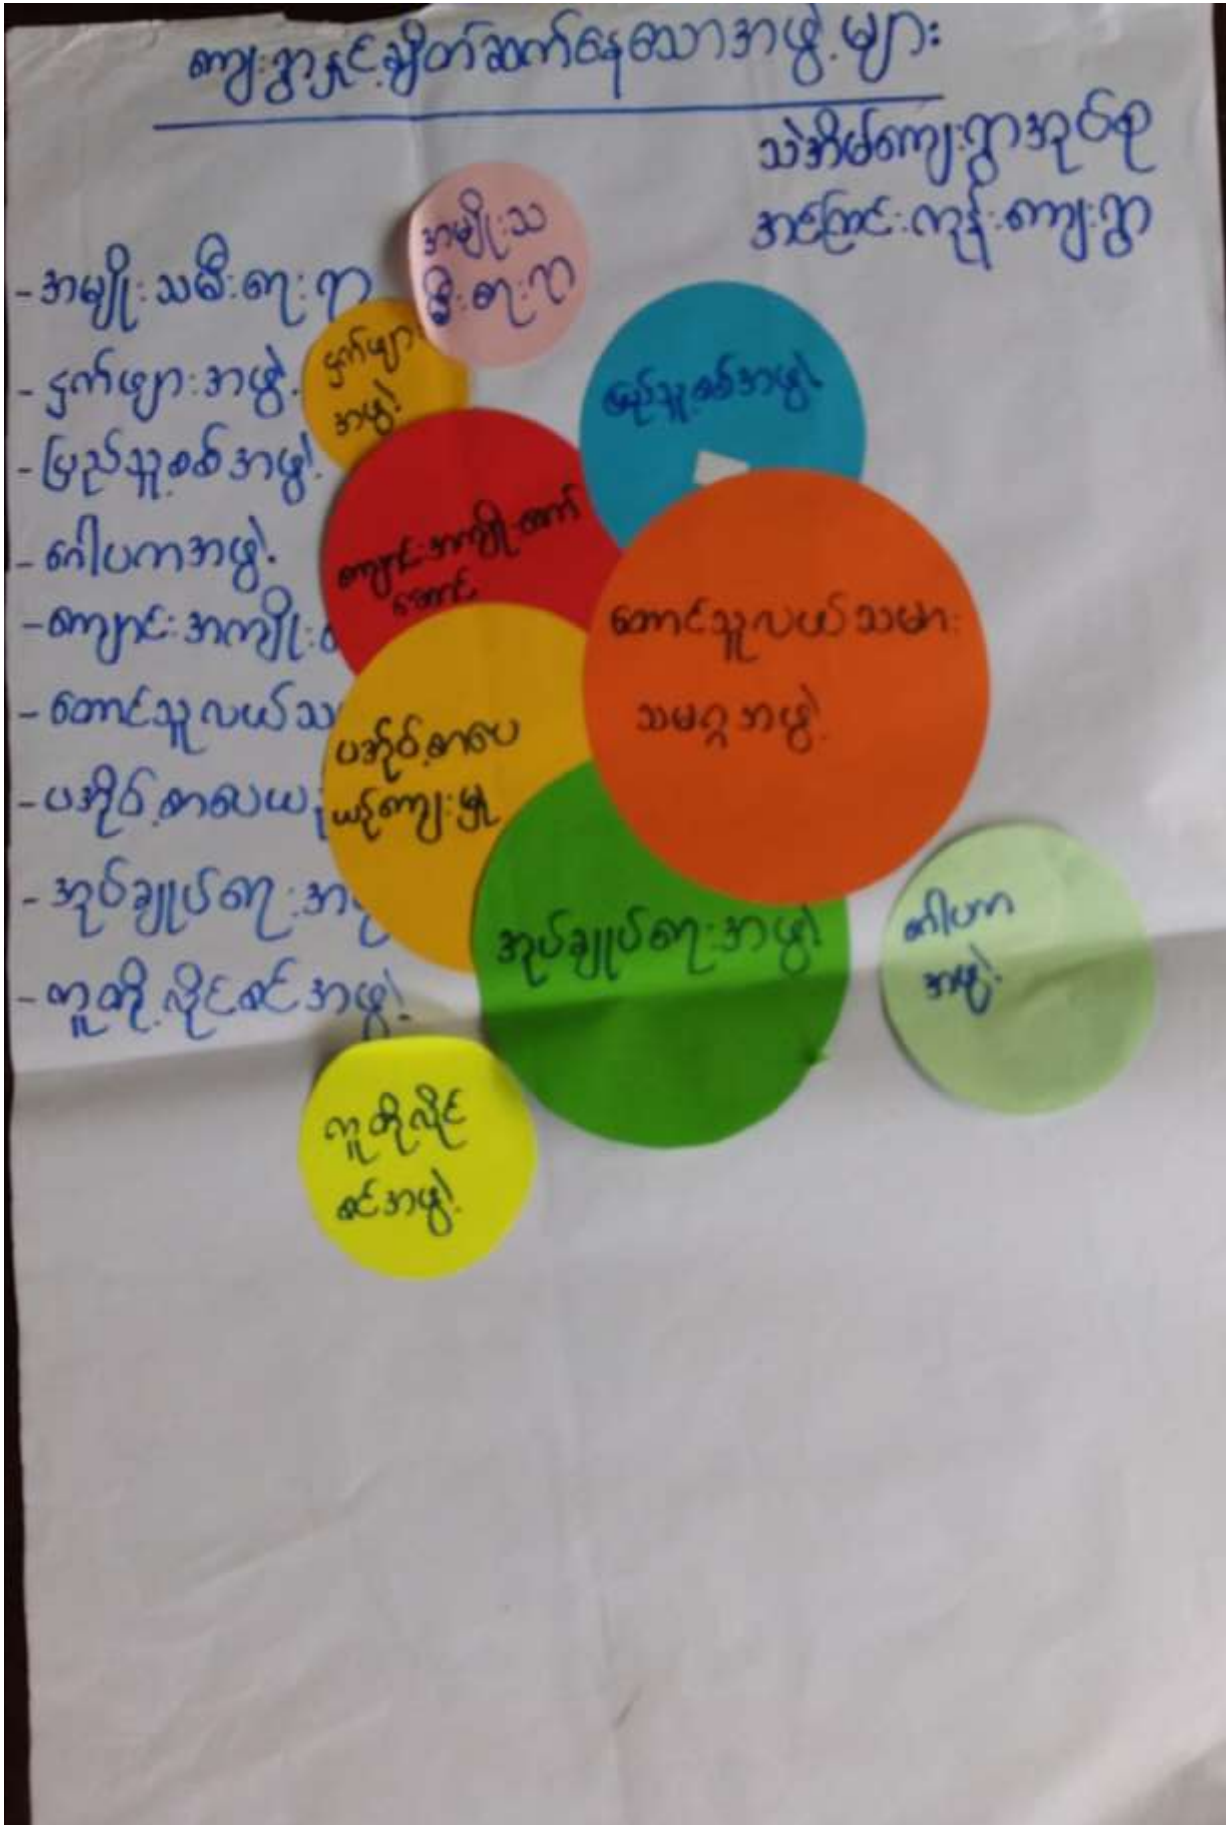 ကျေးရွာနှင့်ချိတ်ဆက်နေသောအဖွဲ့များ
သဲအိမ်ကျေးရွာအုပ်စု
အင်ကြင်းကုန်းကျေးရွာ
- အမျိုးသမီးရေးရာ
- ငှက်ဖျားအဖွဲ့
- ပြည်သူ့စစ်အဖွဲ့
- ဂေါပကအဖွဲ့
- ကျောင်းအကျိုး
- တောင်သူလယ်သ
- ပအိုဝ့်စာပေယဉ်
- အုပ်ချုပ်ရေးအဖွဲ့
- ကူတို့လိုင်စင်အဖွဲ့
အမျိုးသ
မီးရေးရာ
ငှက်ဖျား
အဖွဲ့
ပြည်သူ့စစ်အဖွဲ့
ကျောင်းအကျိုးတော်
ဆောင်
တောင်သူလယ်သမား
သမဂ္ဂအဖွဲ့
ပအိုဝ့်စာပေ
ယဉ်ကျေးမှု
အုပ်ချုပ်ရေးအဖွဲ့
ဂေါပက
အဖွဲ့
ကူတို့လိုင်
စင်အဖွဲ့